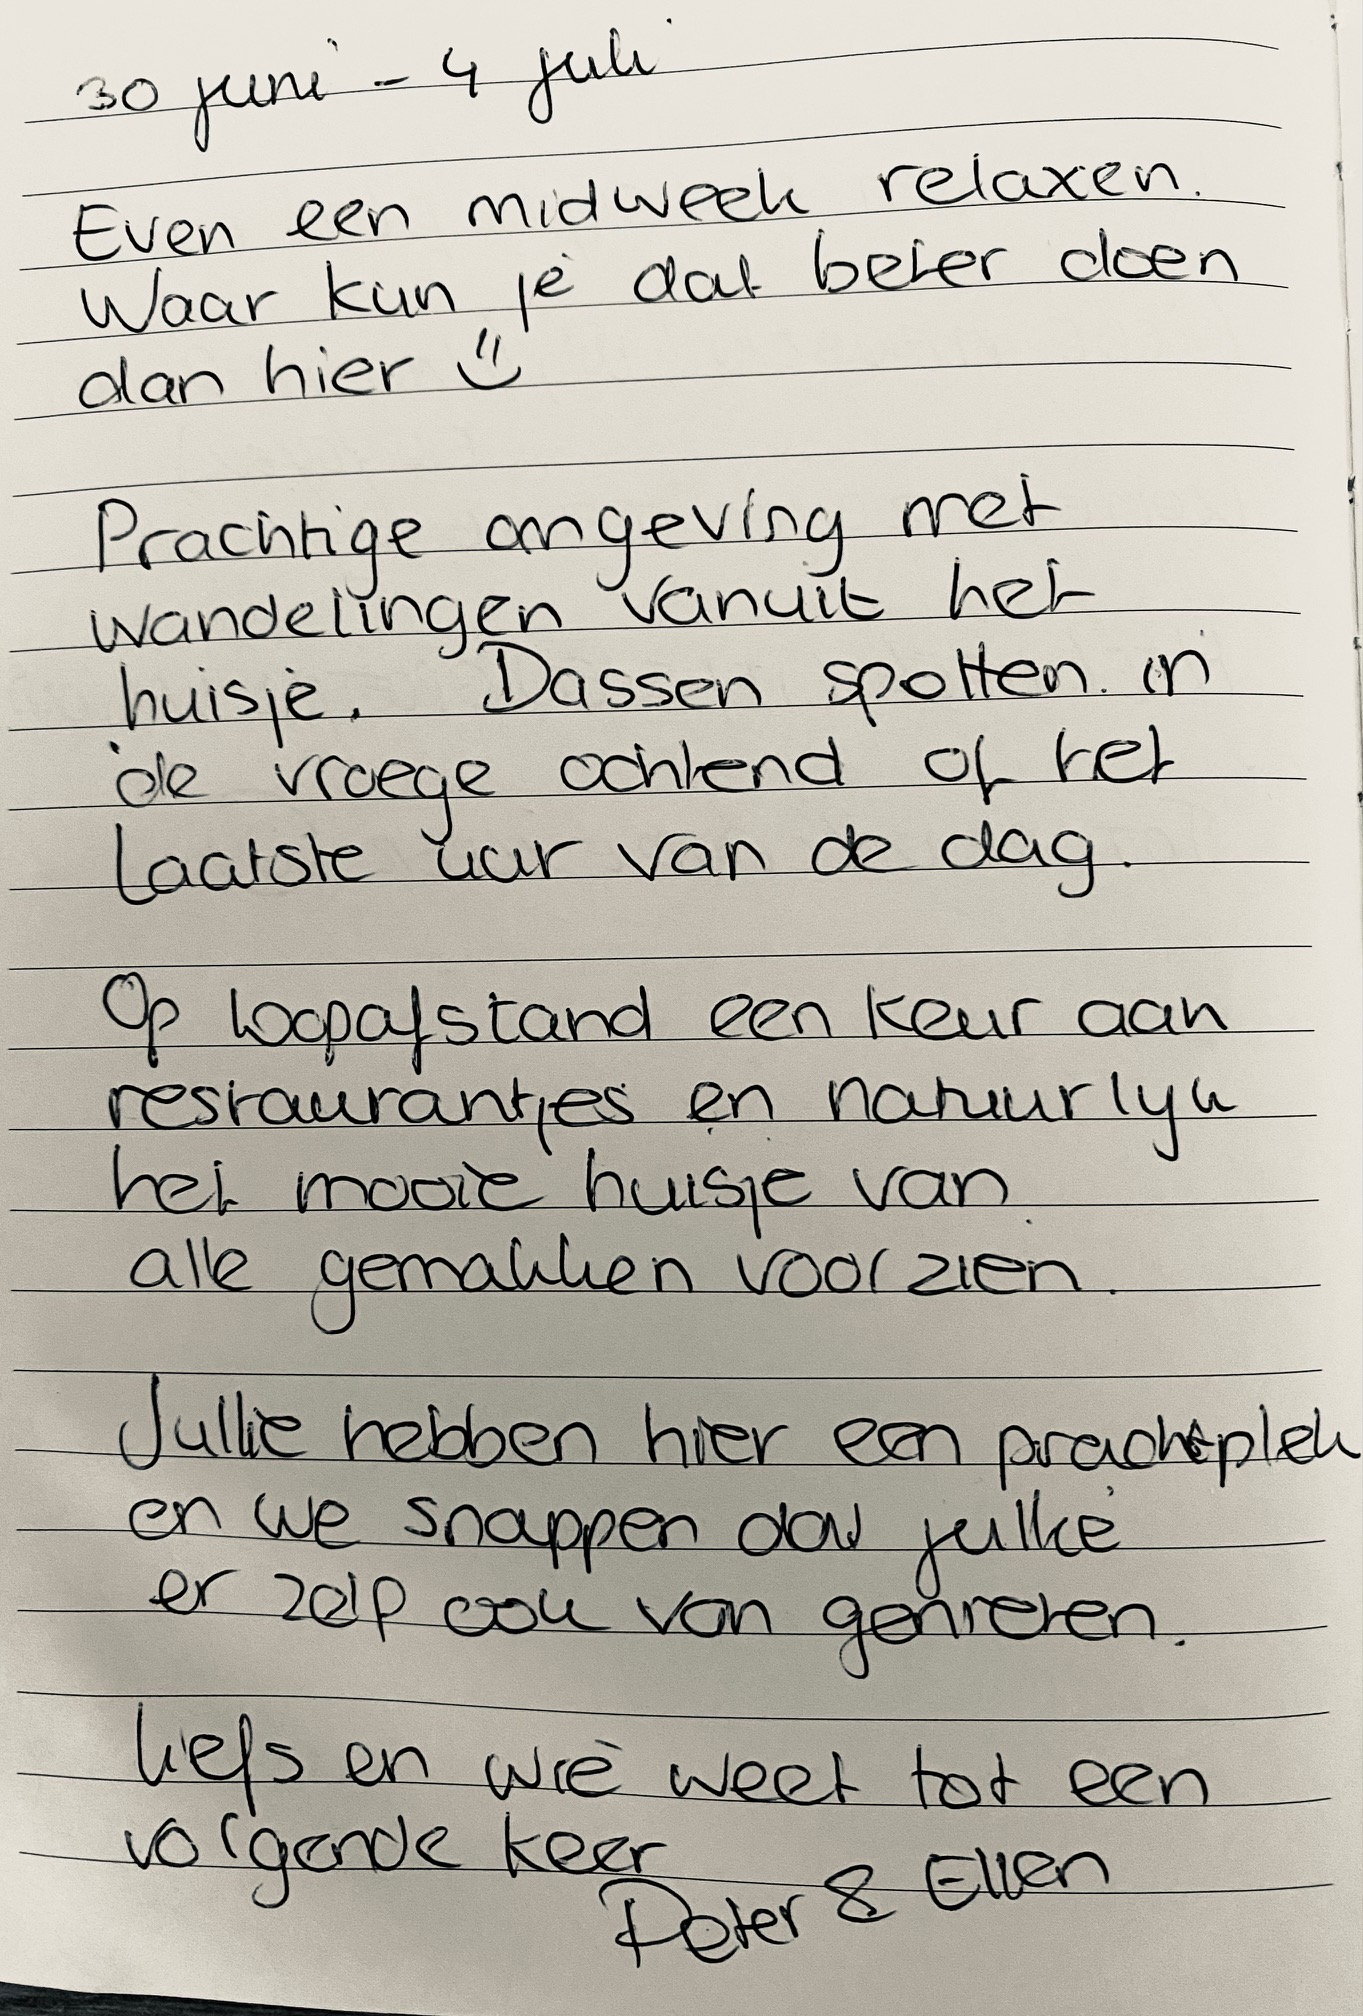 30 juni - 4 juli
Even een midweek relaxen.
Waar kun je dat beter doen
dan hier
Prachtige omgeving met
wandelingen vanuit het
huisje. Dassen spotten in
de vroege ochtend of het
laatste uur van de dag.
Op loopafstand een keur aan
restaurantjes en natuurlyk
het mooie huisje van
alle gemakken voorzien.
Jullie hebben hier een prachtplek
en we snappen dat jullie
er zelf ook van genieten.
Liefs en wie weet tot een
volgende keer
Peter & Ellen